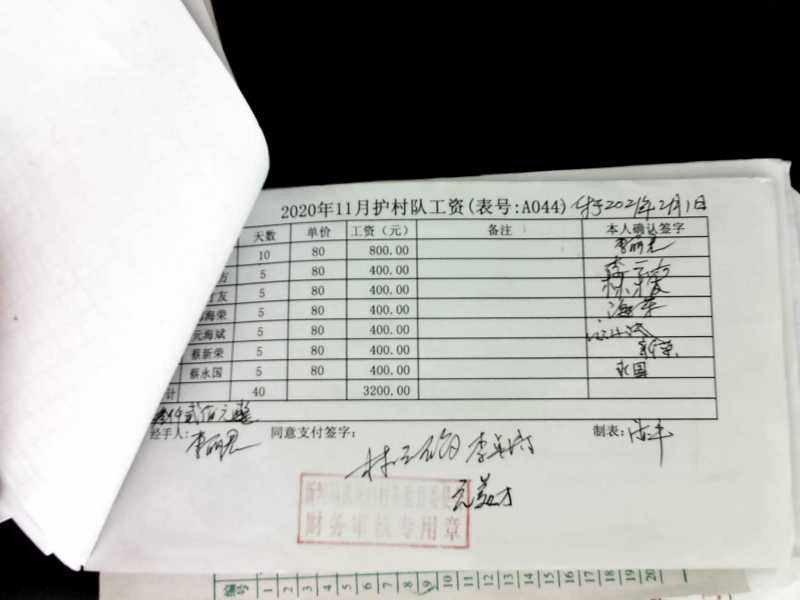 2020年11月护村队工资(表号:A044) 付于2021年2月1日
天数 单价 工资（元） 备注 本人确认签字
10 80 800.00
5 80 400.00
友 5 80 400.00
海荣 5 80 400.00 海荣
元海斌 5 80 400.00
蔡新荣 5 80 400.00 新荣
蔡永国 5 80 400.00 永国
计 40 3200.00
叁仟贰佰元整
经手人: 同意支付签字: 制表:
财务审核专用章
编号 1 2 3 4 5 6 7 8 9 10 11 12 13 14 15 16 17 18 19 20